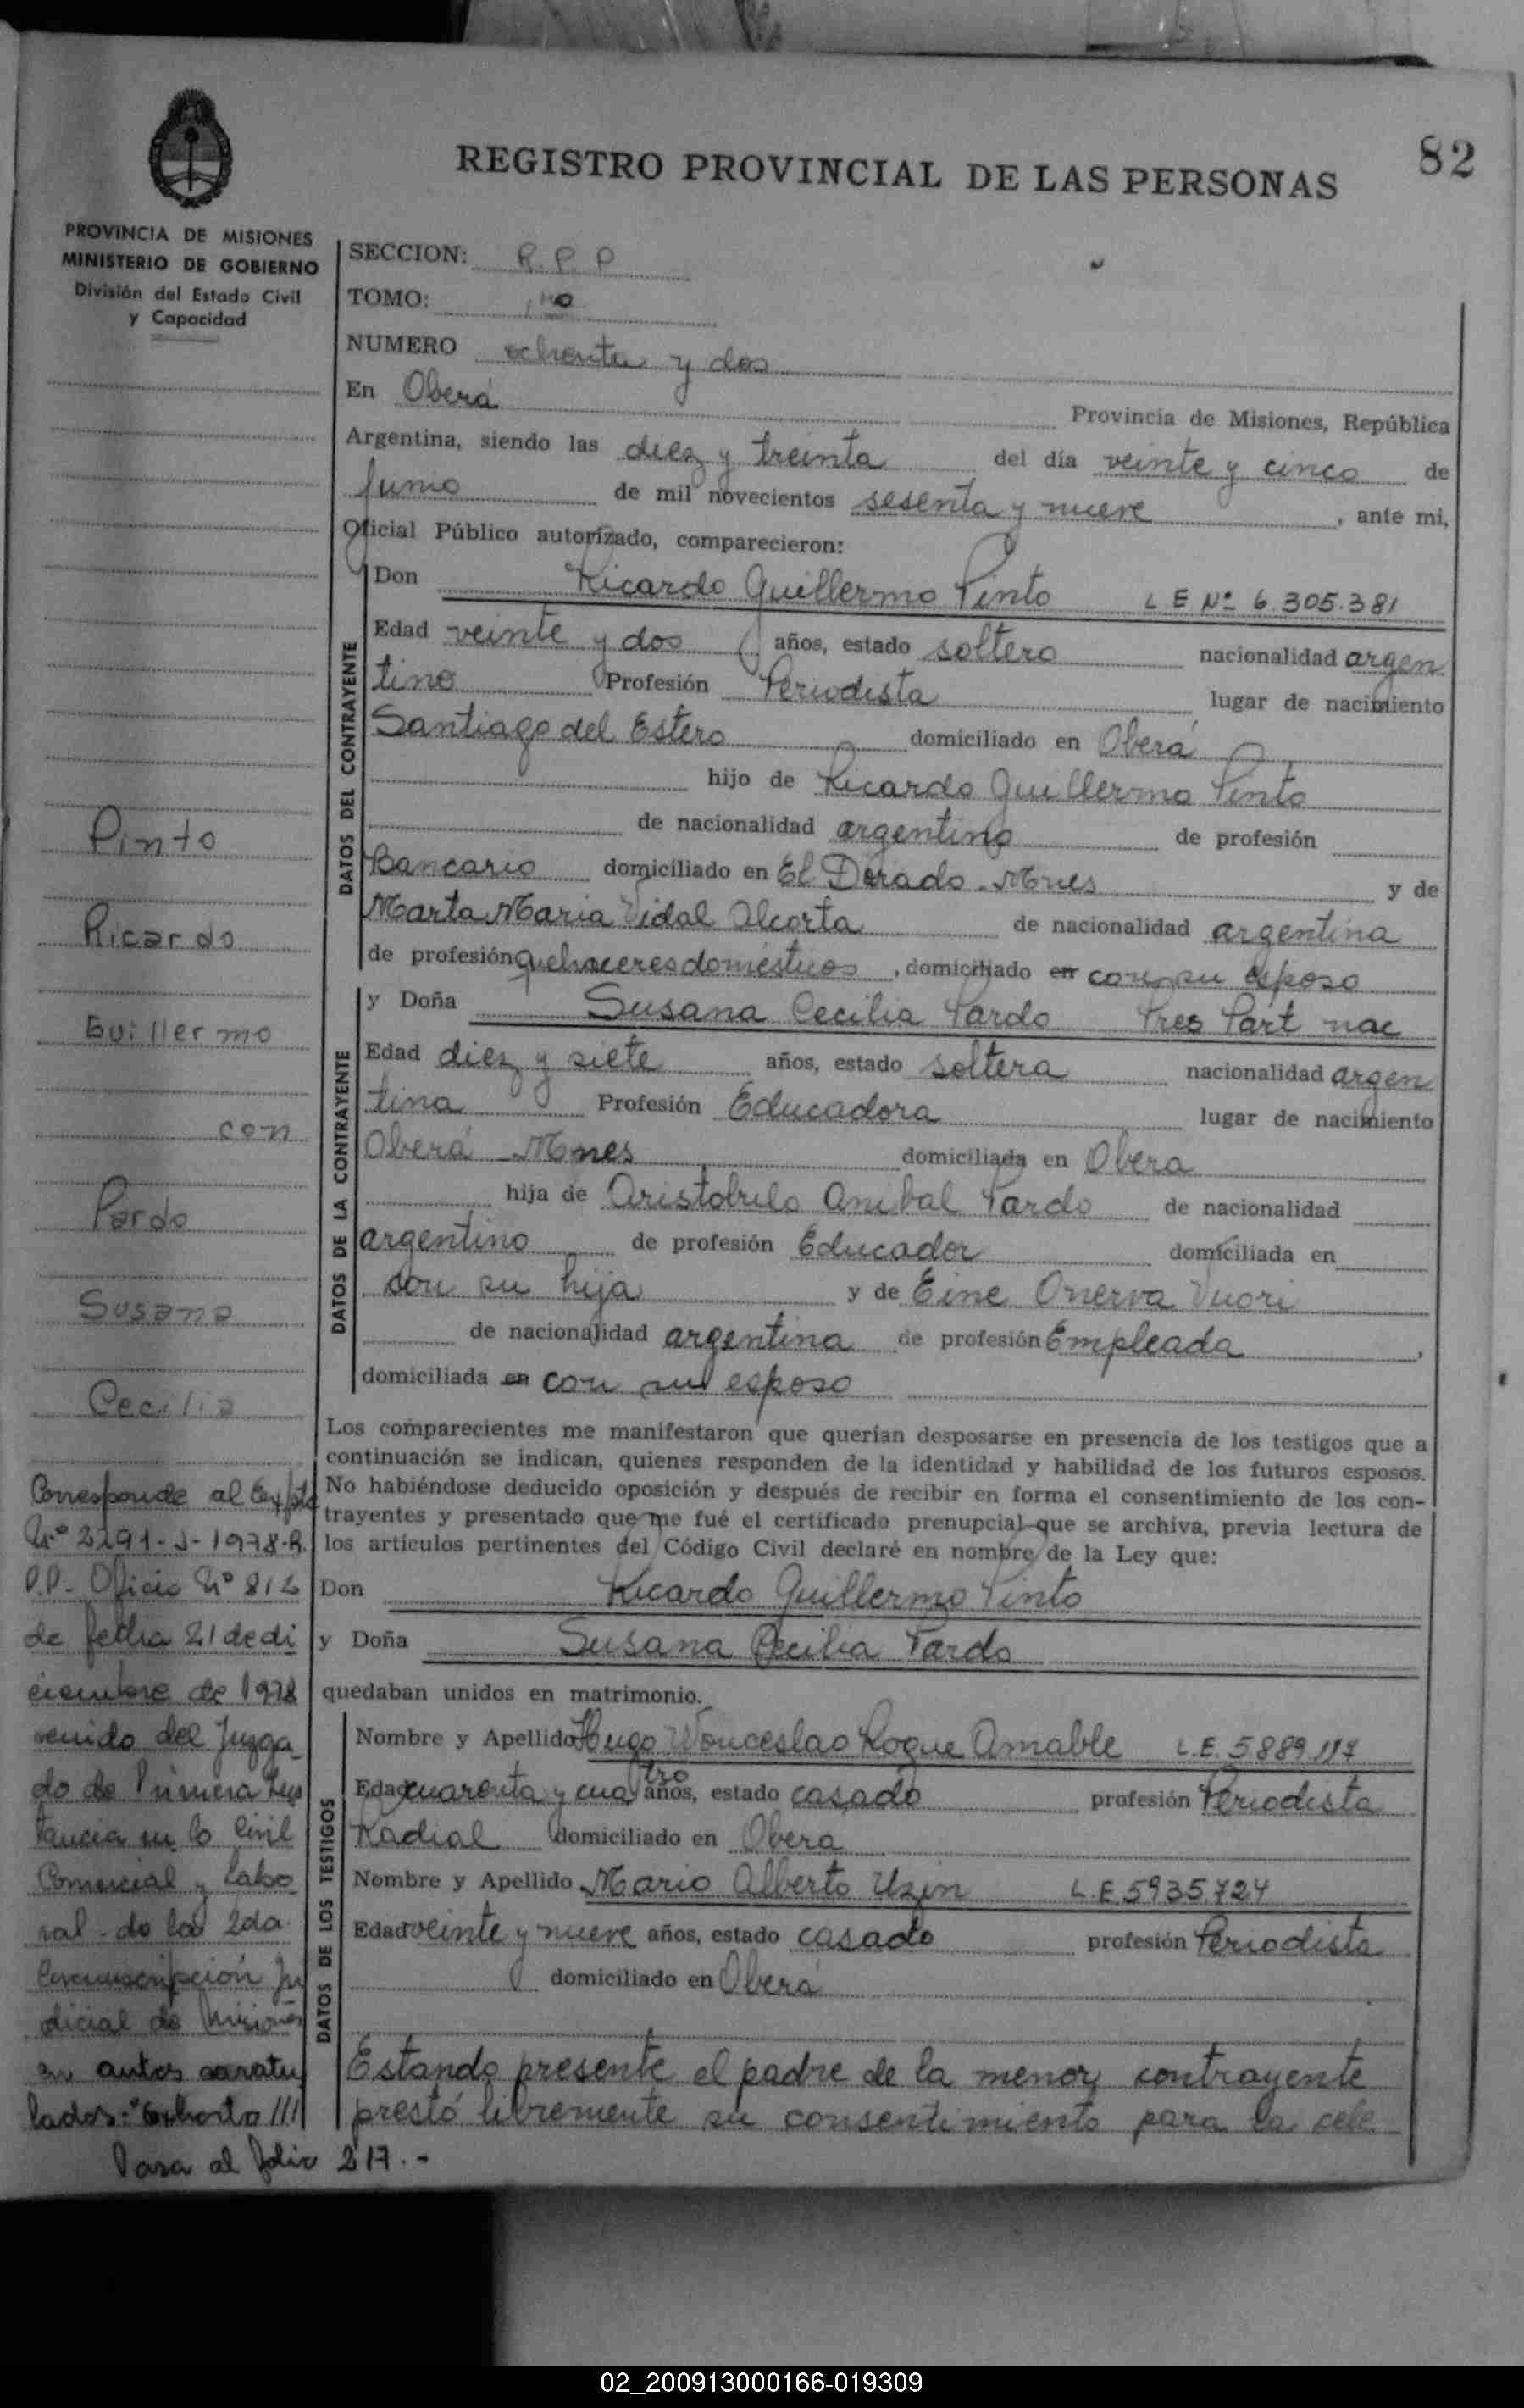 82
REGISTRO PROVINCIAL DE LAS PERSONAS
PROVINCIA DE MISIONES
MINISTERIO DE GOBIERNO
División del Estado Civil
y Capacidad
SECCION: R.P.P
TOMO: 1º
NUMERO ochenta y dos
En Oberá Provincia de Misiones, República
Argentina, siendo las diez y treinta del día veinte y cinco de
Junio de mil novecientos sesenta y nueve, ante mi,
Oficial Público autorizado, comparecieron:
DATOS DEL CONTRAYENTE
Don Ricardo Guillermo Pinto L E Nº 6.305.381
Edad veinte y dos años, estado soltero nacionalidad argen
tino Profesión Periodista lugar de nacimiento
Santiago del Estero domiciliado en Oberá
hijo de Ricardo Guillermo Pinto
de nacionalidad argentino de profesión
Bancario domiciliado en El Dorado - Mnes y de
Marta Maria Vidal Alcorta de nacionalidad argentina
de profesión quehaceres domésticos, domiciliado en con su esposo
DATOS DE LA CONTRAYENTE
y Doña Susana Cecilia Pardo Pres Part nac
Edad diez y siete años, estado soltera nacionalidad argen
tina Profesión Educadora lugar de nacimiento
Oberá Mnes domiciliada en Oberá
hija de Aristobulo Anibal Pardo de nacionalidad
argentino de profesión Educador domiciliada en
con su hija y de Eine Onerva Vuori
de nacionalidad argentina de profesión Empleada,
domiciliada en con su esposo
Los comparecientes me manifestaron que querían desposarse en presencia de los testigos que a
continuación se indican, quienes responden de la identidad y habilidad de los futuros esposos.
No habiéndose deducido oposición y después de recibir en forma el consentimiento de los con-
trayentes y presentado que me fué el certificado prenupcial que se archiva, previa lectura de
los artículos pertinentes del Código Civil declaré en nombre de la Ley que:
Don Ricardo Guillermo Pinto
y Doña Susana Cecilia Pardo
quedaban unidos en matrimonio.
DATOS DE LOS TESTIGOS
Nombre y Apellido Hugo Wenceslao Roque Amable L.E. 5.889.117
Edad cuarenta y cuatro años, estado casado profesión Periodista
Radial domiciliado en Oberá
Nombre y Apellido Mario Alberto Uzin L.E. 5935.724
Edad veinte y nueve años, estado casado profesión Periodista
domiciliado en Oberá
Estando presente el padre de la menor contrayente
prestó libremente su consentimiento para la cele
Pinto
Ricardo
Guillermo
con
Pardo
Susana
Cecilia
Corresponde al Expte
Nº 3291-J-1978-R.
P.P. Oficio Nº 812
de fecha 21 de di
ciembre de 1978
venido del Juzga
do de Primera Ins
tancia en lo Civil
Comercial y Labo
ral de la 2da.
Circunscripción Ju
dicial de Misiones
en autos caratu
lados: "Exhorto ///
Pasa al folio 217.-
02_200913000166-019309